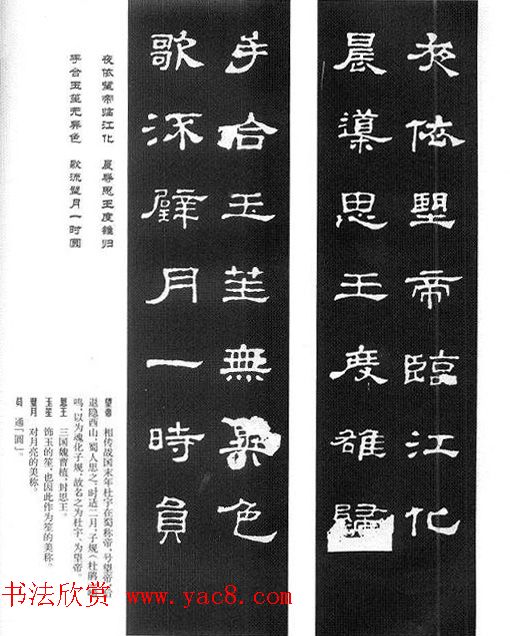 夜依朢帝臨江化
晨導思王度雒歸
手合玉笙無異色
歌流璧月一時員
夜依望帝临江化 晨导思王度雒归
手合玉笙无异色 歌流璧月一时圆
望帝 相传战国末年杜宇在蜀称帝，号望帝
退隐西山，蜀人思之；时适二月，子规（杜鹃
鸣，以为魂化子规，故名之为杜宇、为望帝。
思王 三国魏曹植，封思王。
玉笙 饰玉的笙，也因此作为笙的美称。
璧月 对月亮的美称。
员 通「圆」。
书法欣赏 www.yac8.com